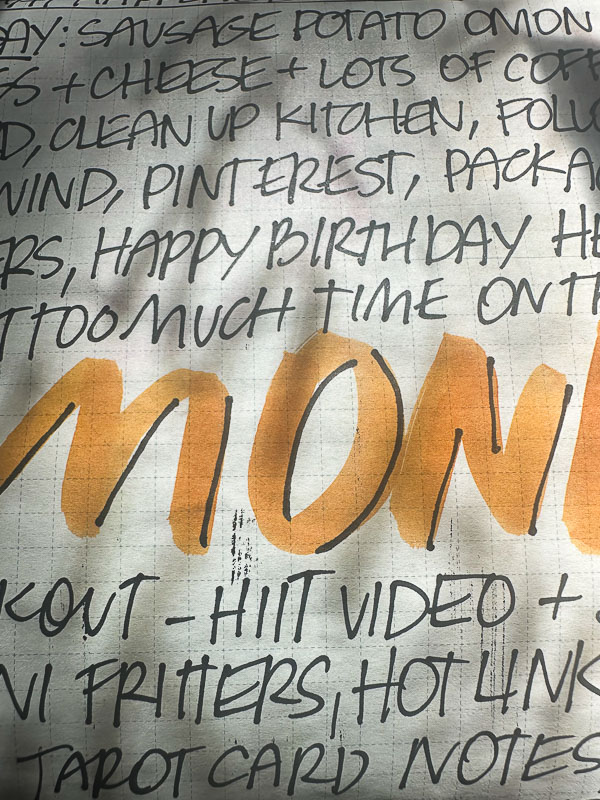 AY: SAUSAGE POTATO ONION
GS + CHEESE + LOTS OF COFF
D, CLEAN UP KITCHEN, FOLLO
WIND, PINTEREST, PACKA
ERS, HAPPY BIRTHDAY HE
T TOO MUCH TIME ON TH
MON
KOUT - HIIT VIDEO +
NI FRITTERS, HOT LINK
TAROT CARD NOTES